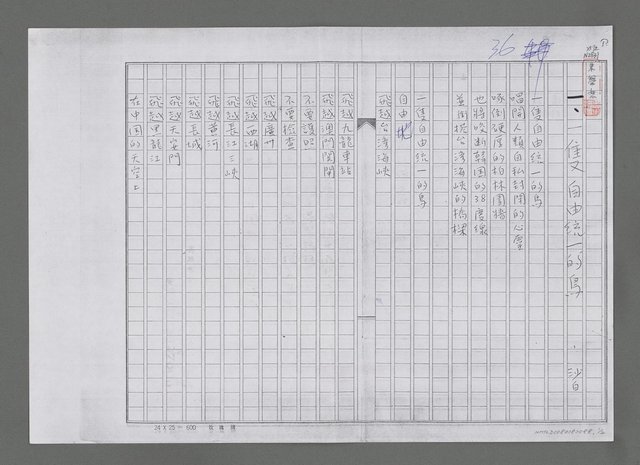 36
一、一隻自由統一的鳥
一隻自由統一的鳥
唱開人類自私封閉的心靈
啄倒硬厚的柏林圍牆
也將咬斷韓国的38度線
並銜搭台湾海峽的橋樑
一隻自由統一的鳥
自由地
飛越台湾海峽
飛越九龍車站
飛越澳門関閘
不要護照
不要檢查
飛越廣州
飛越西湖
飛越長江三峽
飛越黃河
飛越長城
飛越天安門
飛越黑龍江
在中国的天空上
24 X 25 = 600